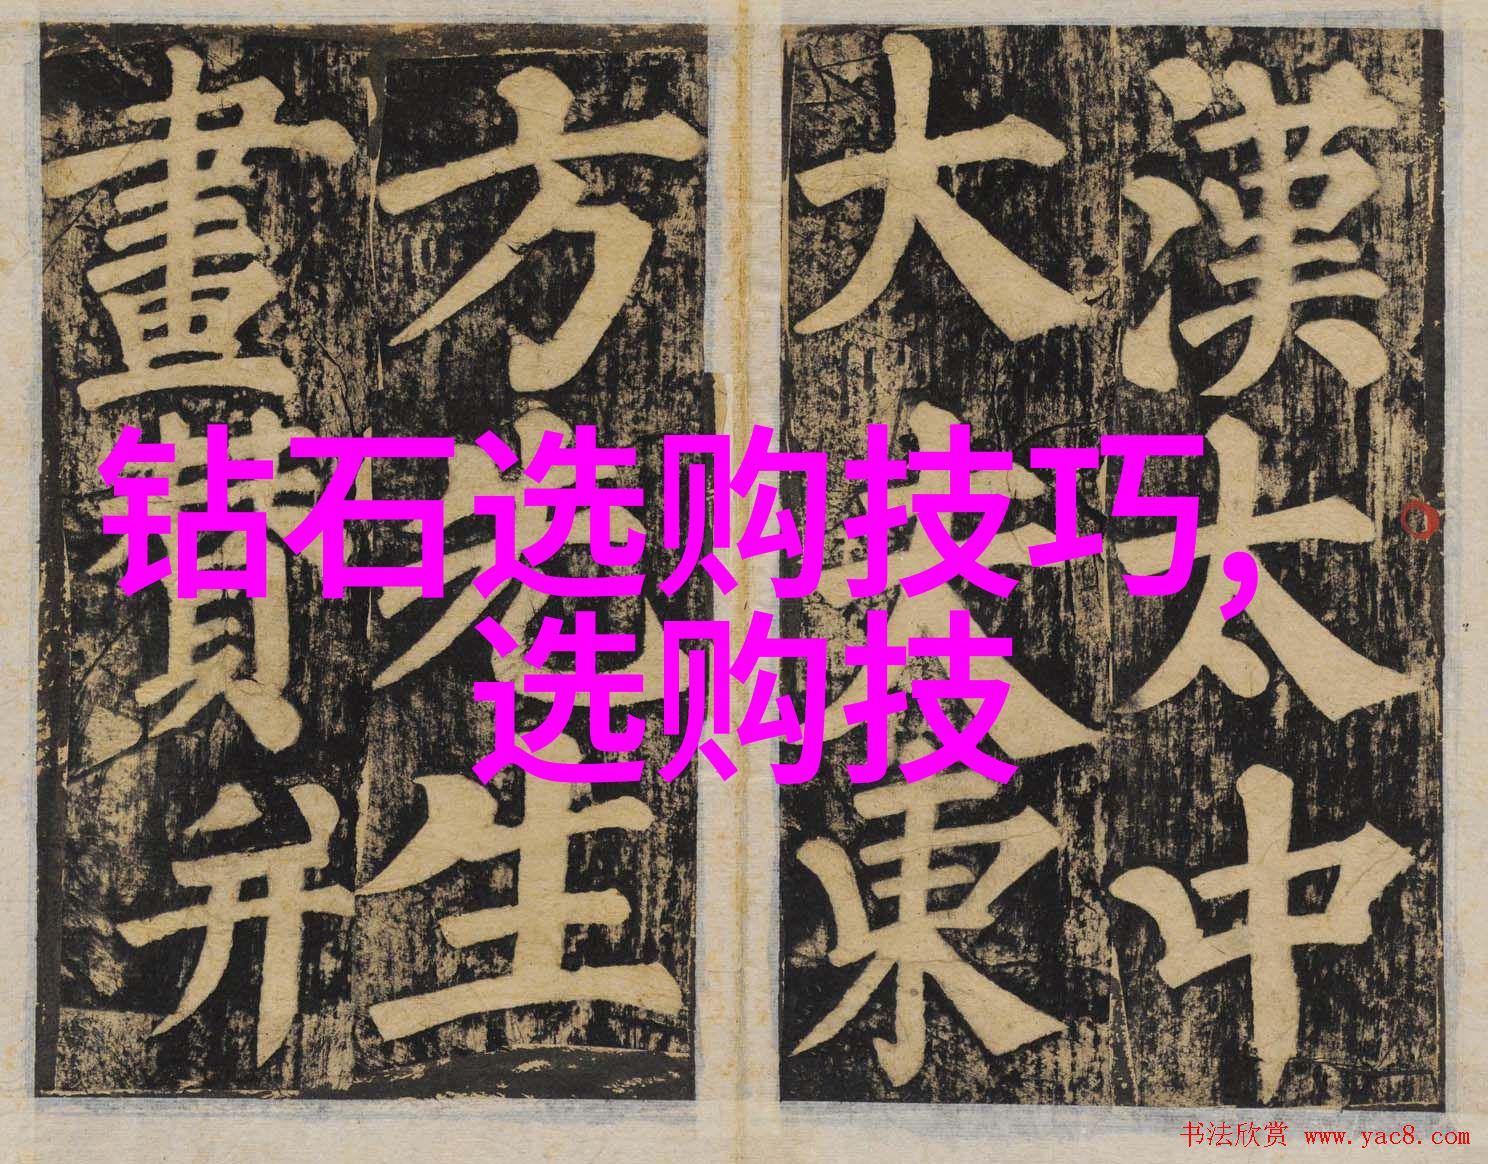 漢太中
大夫東
方先生
畫贊并
钻石选购技巧,
选购技
书法欣赏 www.yac8.com